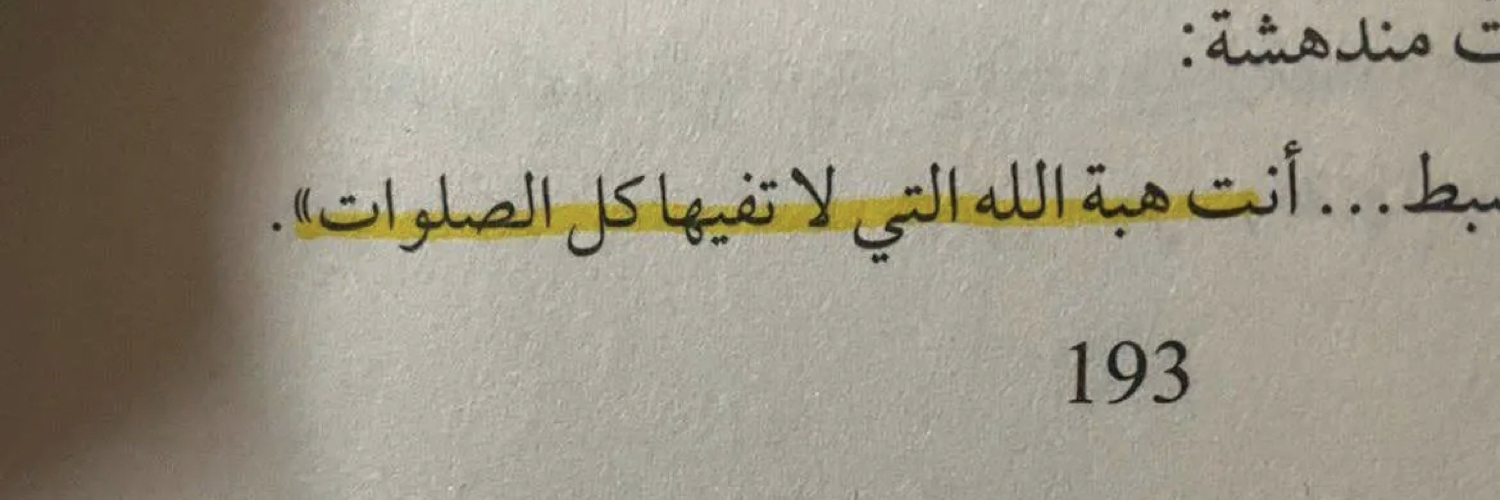 مندهشة:
... أنت هبة الله التي لا تفيها كل الصلوات».
193